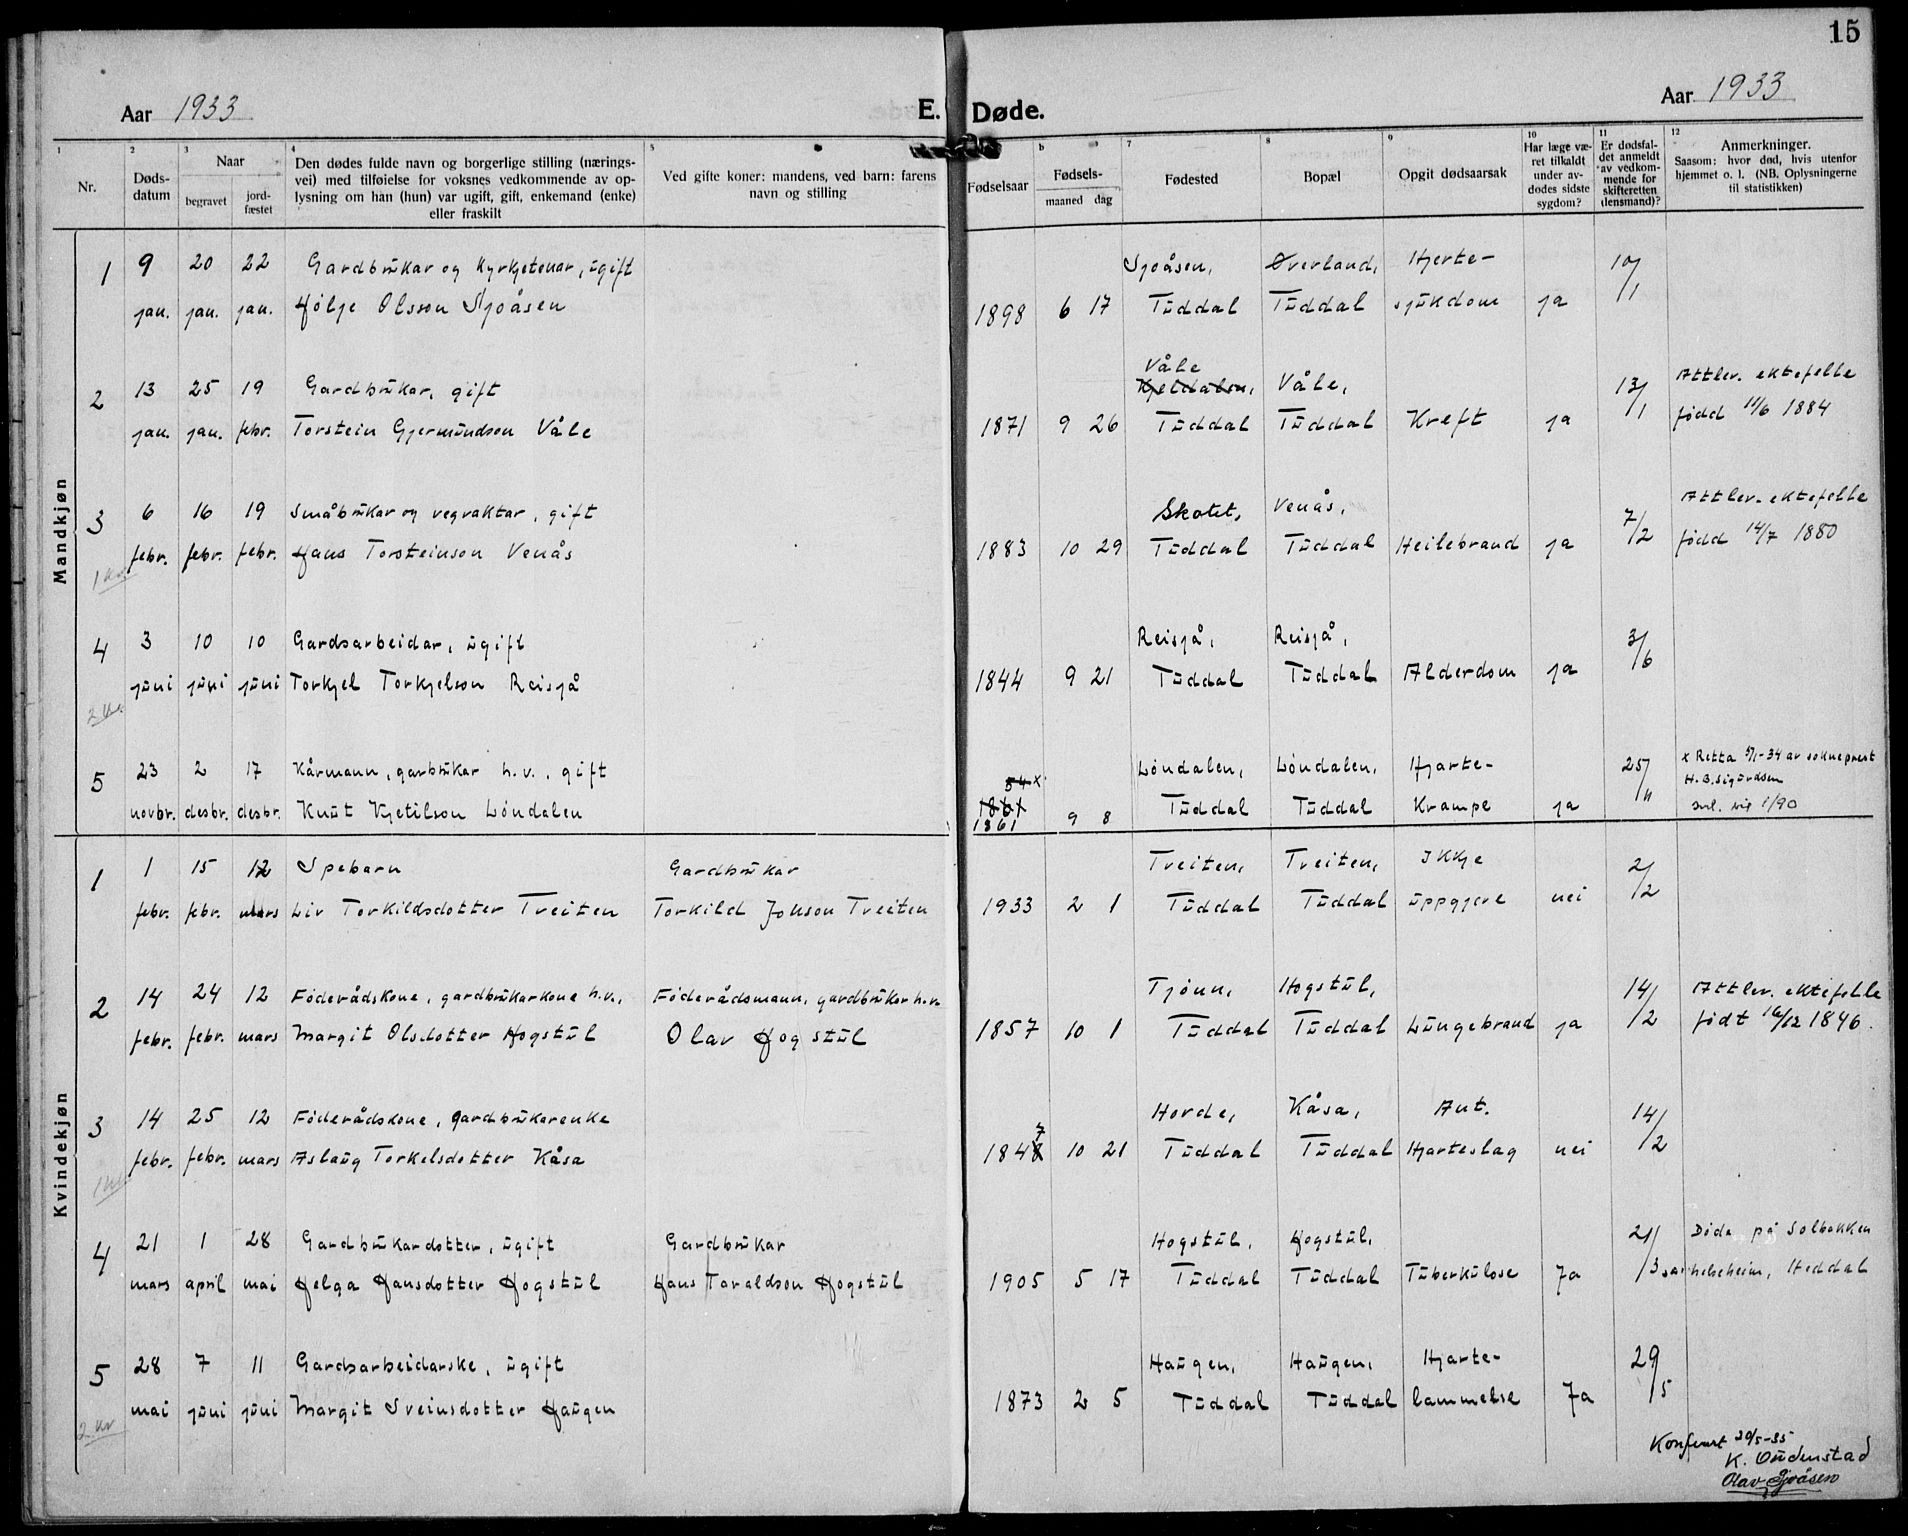 15
Aar 1933
E. Døde.
Aar 1933
1 Nr.
2 Døds-datum
3 Naar
begravet
jord-fæstet
4 Den dødes fulde navn og borgerlige stilling (nærings-
vei) med tilføielse for voksnes vedkommende av op-
lysning om han (hun) var ugift, gift, enkemand (enke)
eller fraskilt
5 Ved gifte koner: mandens, ved barn: farens
navn og stilling
Fødselsaar
6 Fødsels-
maaned dag
7 Fødested
8 Bopæl
9 Opgit dødsaarsak
10 Har læge væ-
ret tilkaldt
under av-
dødes sidste
sygdom?
11 Er dødsfal-
det anmeldt
av vedkom-
mende for
skifteretten
(lensmand)?
12 Anmerkninger.
Saasom: hvor død, hvis utenfor
hjemmet o. l. (NB. Oplysningerne
til statistikken)
Mandkjøn
1 9 20 22 Gardbrukar og kyrkjetenar, ugift Sjoåsen, Øverland, Hjerte- 10/1
jan. jan. jan. Hølje Olsson Sjoåsen 1898 6 17 Tuddal Tuddal sjukdom ja
Våle
2 13 25 19 Gardbrukar, gift Kjeldalen, Våle, 13/1 Attlev. ektefelle
jan. jan. febr. Torstein Gjermundson Våle 1871 9 26 Tuddal Tuddal Kreft ja fødd 11/6 1884
3 6 16 19 Småbrukar og vegvaktar, gift Skotet, Venås, 7/2 Attlev. ektefelle
febr. febr. febr. Hans Torsteinson Venås 1883 10 29 Tuddal Tuddal Heilebrand ja fødd 14/7 1880
4 3 10 10 Gardsarbeidar, ugift Reisjå, Reisjå, 3/6
juni juni juni Torkjel Torkjelson Reisjå 1844 9 21 Tuddal Tuddal Alderdom ja
5 23 2 17 Kårmann, garbrukar h.v., gift 54 x Løndalen, Løndalen, Hjarte- 25/11 x Retta 5/1-34 av sokneprest
H. B. Sigurdsen
novbr. desbr. desbr. Knut Kjetilson Løndalen 1861 9 8 Tuddal Tuddal Krampe ja 1/90
1861
Kvindekjøn
1 1 15 12 Spebarn Gardbrukar Treiten, Treiten, Ikkje 2/2
febr. febr. mars Liv Torkildsdotter Treiten Torkild Jonson Treiten 1933 2 1 Tuddal Tuddal uppgjeve nei
2 14 24 12 Føderådskone, gardbrukarkone h.v., Føderådsmann, gardbrukar h.v. Tjønn, Hogstul, 14/2 Attlev. ektefelle
febr. febr. mars Margit Olsdotter Hogstul Olav Hogstul 1857 10 1 Tuddal Tuddal Lungebrand ja født 16/12 1846.
3 14 25 12 Føderådskone, gardbrukarenke Horde, Kåsa, Ant. 14/2
febr. febr. mars Aslaug Torkelsdotter Kåsa 1847 10 21 Tuddal Tuddal Hjarteslag nei
4 21 1 28 Gardbrukardotter, ugift Gardbrukar Hogstul, Hogstul, 21/3 Døde på Solbakken
mars april mai Helga Hansdotter Hogstul Hans Taraldson Hogstul 1905 5 17 Tuddal Tuddal Tuberkulose Ja helseheim, Heddal
5 28 7 11 Gardsarbeidarske, ugift Haugen, Haugen, Hjarte- 29/5
mai juni juni Margit Sveinsdotter Haugen 1873 2 5 Tuddal Tuddal lammelse Ja
2 kv
Konferert 20/5-35
K. Oudenstad
Olav Sjoåsen